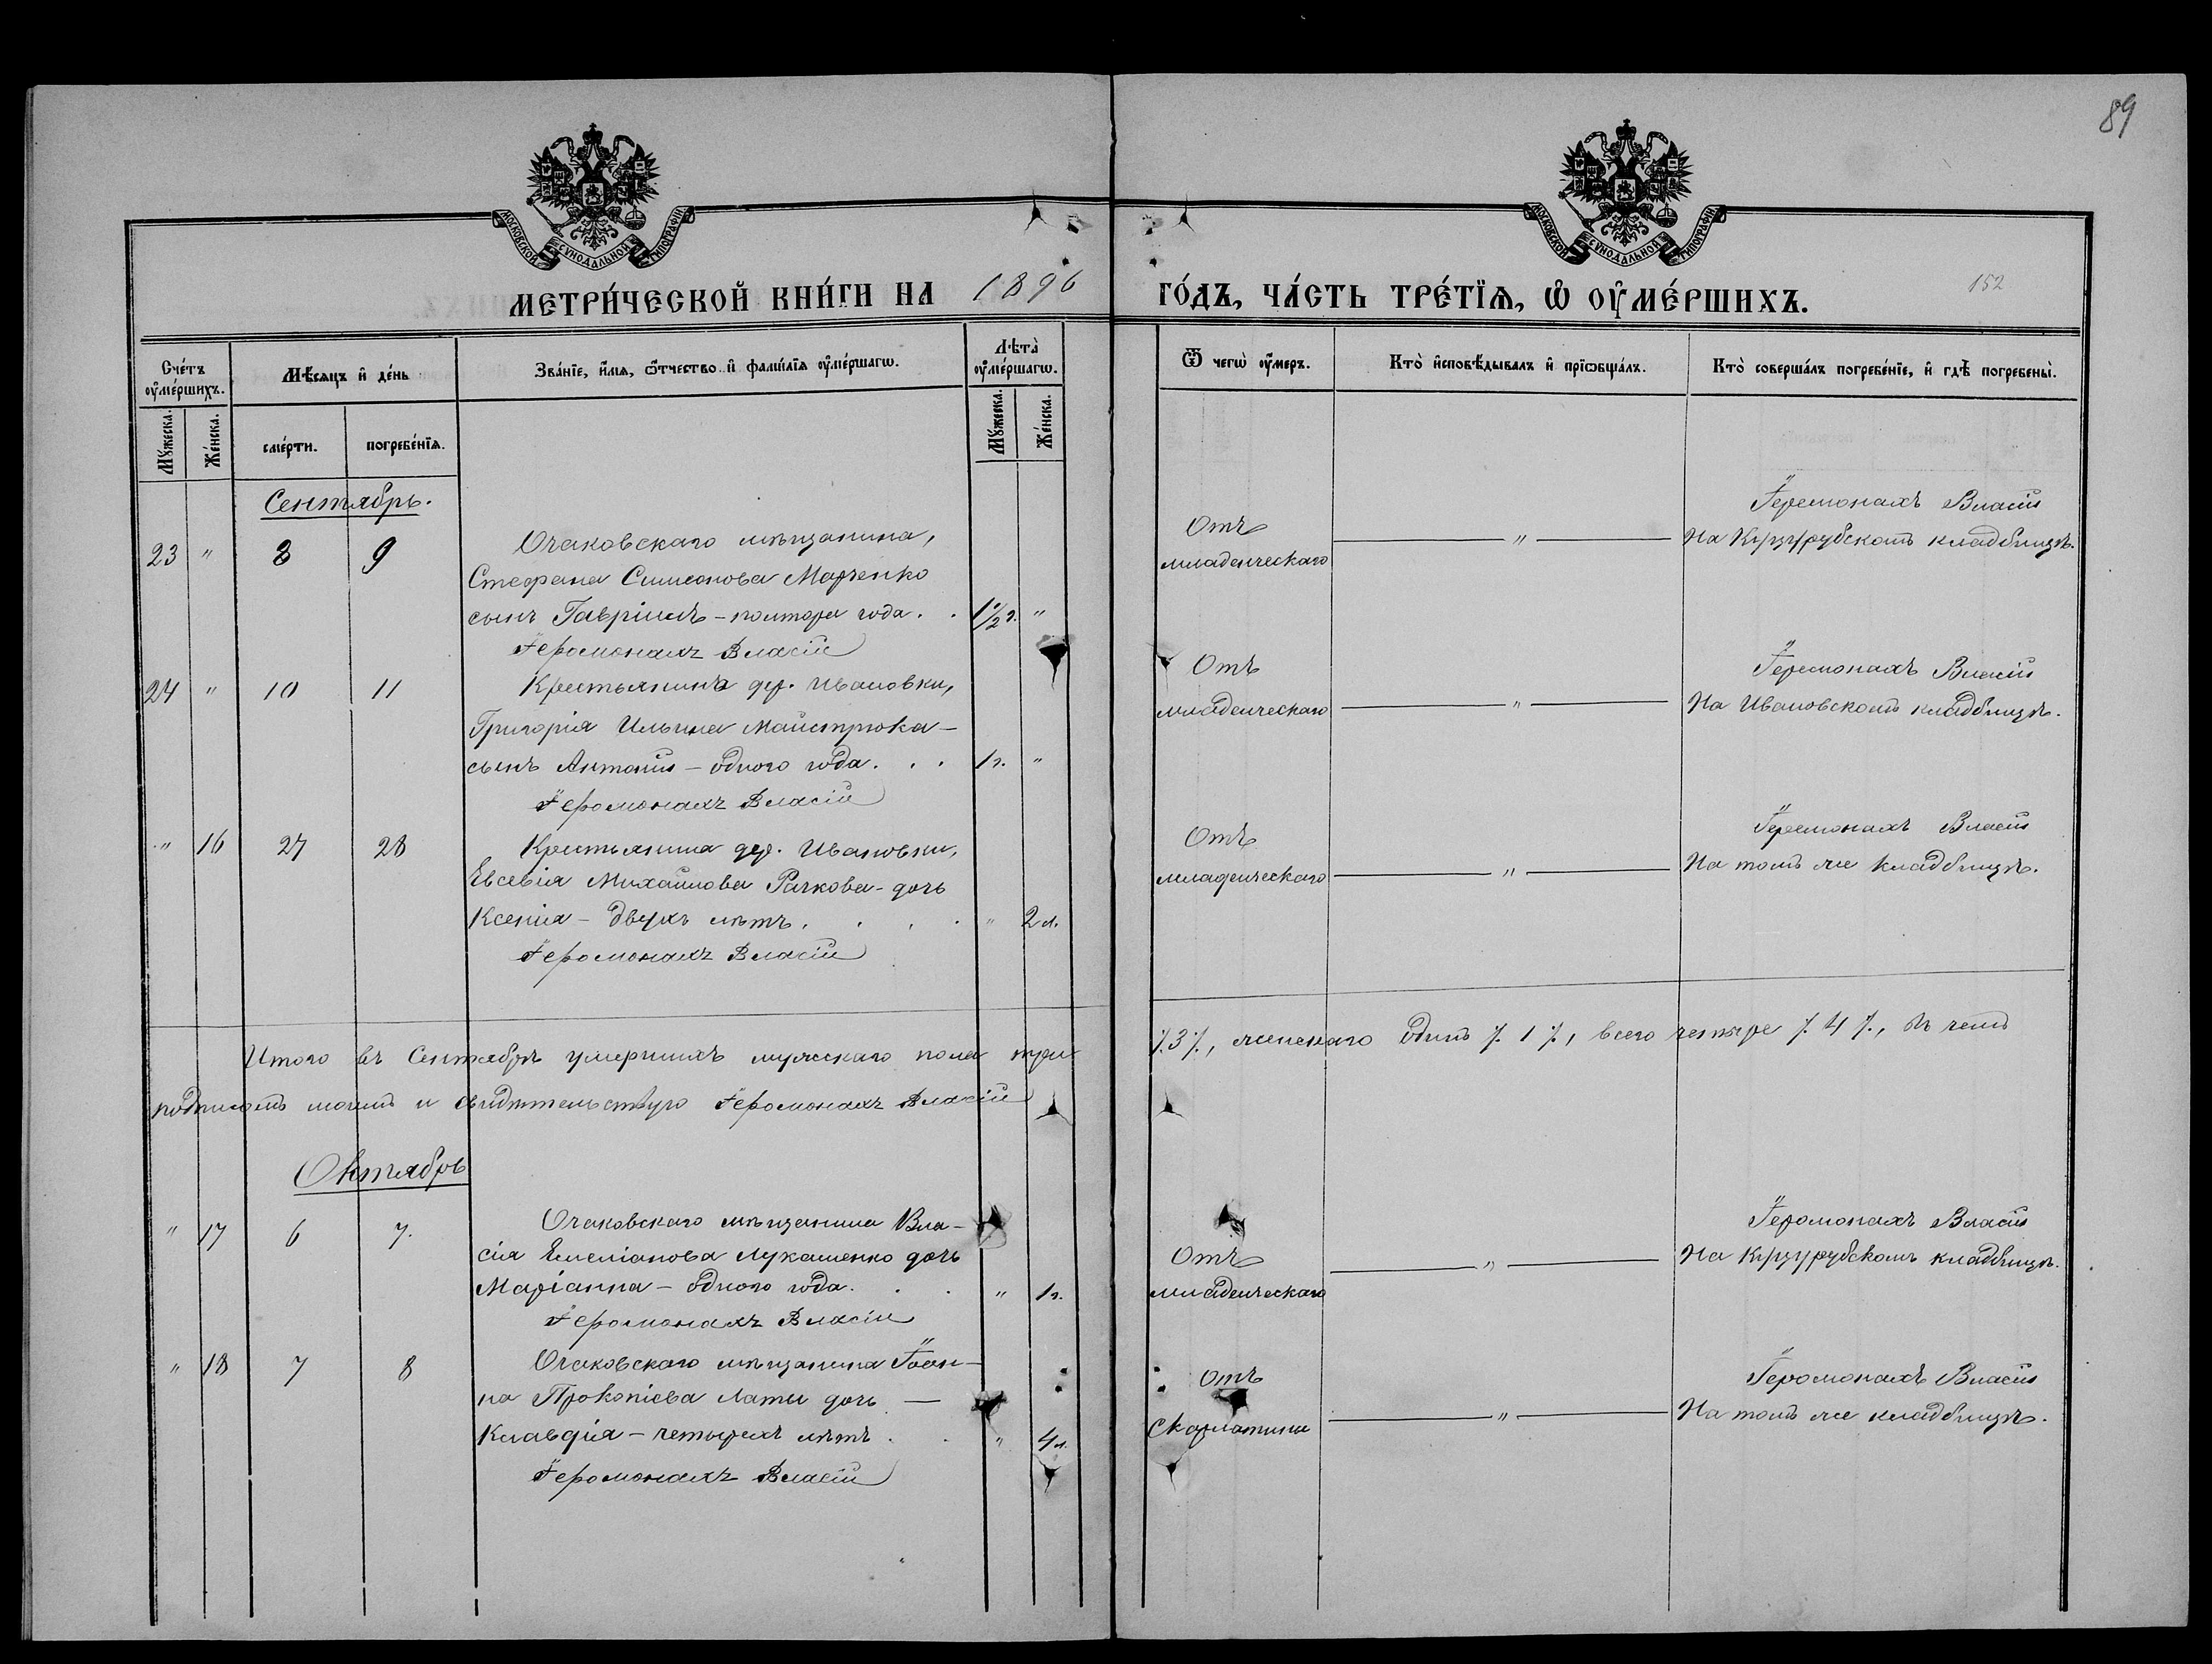 89
МОСКОВСКОЙ СѴНОДАЛЬНОЙ ТИПОГРАФІИ
МОСКОВСКОЙ СѴНОДАЛЬНОЙ ТИПОГРАФІИ
МЕТРИ́ЧЕСКОЙ КНИ́ГИ НА 1896 ГО́ДЪ, ЧА́СТЬ ТРЕ́ТІѦ, Ѡ҆ ОУ҆МЕ́РШИХЪ.
152
Сче́тъ оу҆ме́ршихъ.
Мѣ́сяцъ и҆ де́нь
Зва́нїе, и҆́мѧ, ѻ҆́тчество и҆ фами́лїѧ оу҆ме́ршагѡ.
Лѣта̀ оу҆ме́ршагѡ.
Ѿ чегѡ̀ оу҆́меръ.
Кто̀ и҆сповѣ́дывалъ и҆ прїѡбща́лъ.
Кто̀ соверша́лъ погребе́нїе, и҆ гдѣ̀ погребены̀.
Мꙋ́жеска.
Же́нска.
сме́рти.
погребе́нїѧ.
Мꙋ́жеска.
Же́нска.
Сентябрь.
23 " 8 9 Очаковскаго мѣщанина,
Стефана Симеонова Марченко
сынъ Гавріилъ – полтора года . . 1½ г. "
Іеромонахъ Власій
Отъ младенческаго
"
Іеромонахъ Власій
На Куцурубскомъ кладбищѣ.
24 " 10 11 Крестьянина дер. Ивановки,
Григорія Ильина Майстрюка –
сынъ Антоній – одного года . . . 1 г. "
Іеромонахъ Власій
Отъ младенческаго
"
Іеромонахъ Власій
На Ивановскомъ кладбищѣ.
" 16 27 28 Крестьянина дер. Ивановки,
Евсевія Михайлова Рачкова – дочь
Ксенія – двухъ лѣтъ . . . . " 2 л.
Іеромонахъ Власій
Отъ младенческаго
"
Іеромонахъ Власій
На томъ же кладбищѣ.
Итого въ Сентябрѣ умершихъ мужскаго пола три ⁒ 3 ⁒, женскаго одинъ ⁒ 1 ⁒, всего четыре ⁒ 4 ⁒, въ чемъ
подписомъ моимъ и свидѣтельствую Іеромонахъ Власій
Октябрь
" 17 6 7. Очаковскаго мѣщанина Вла-
сія Емеліанова Лукашенко дочь
Маріанна – одного года . . . " 1 г.
Іеромонахъ Власій
Отъ младенческаго
"
Іеромонахъ Власій
На Куцурубскомъ кладбищѣ.
" 18 7 8 Очаковскаго мѣщанина Іоан-
на Прокопіева Латы дочь –
Клавдія – четырехъ лѣтъ . . " 4 л.
Іеромонахъ Власій
Отъ Скарлатины
"
Іеромонахъ Власій
На томъ же кладбищѣ.